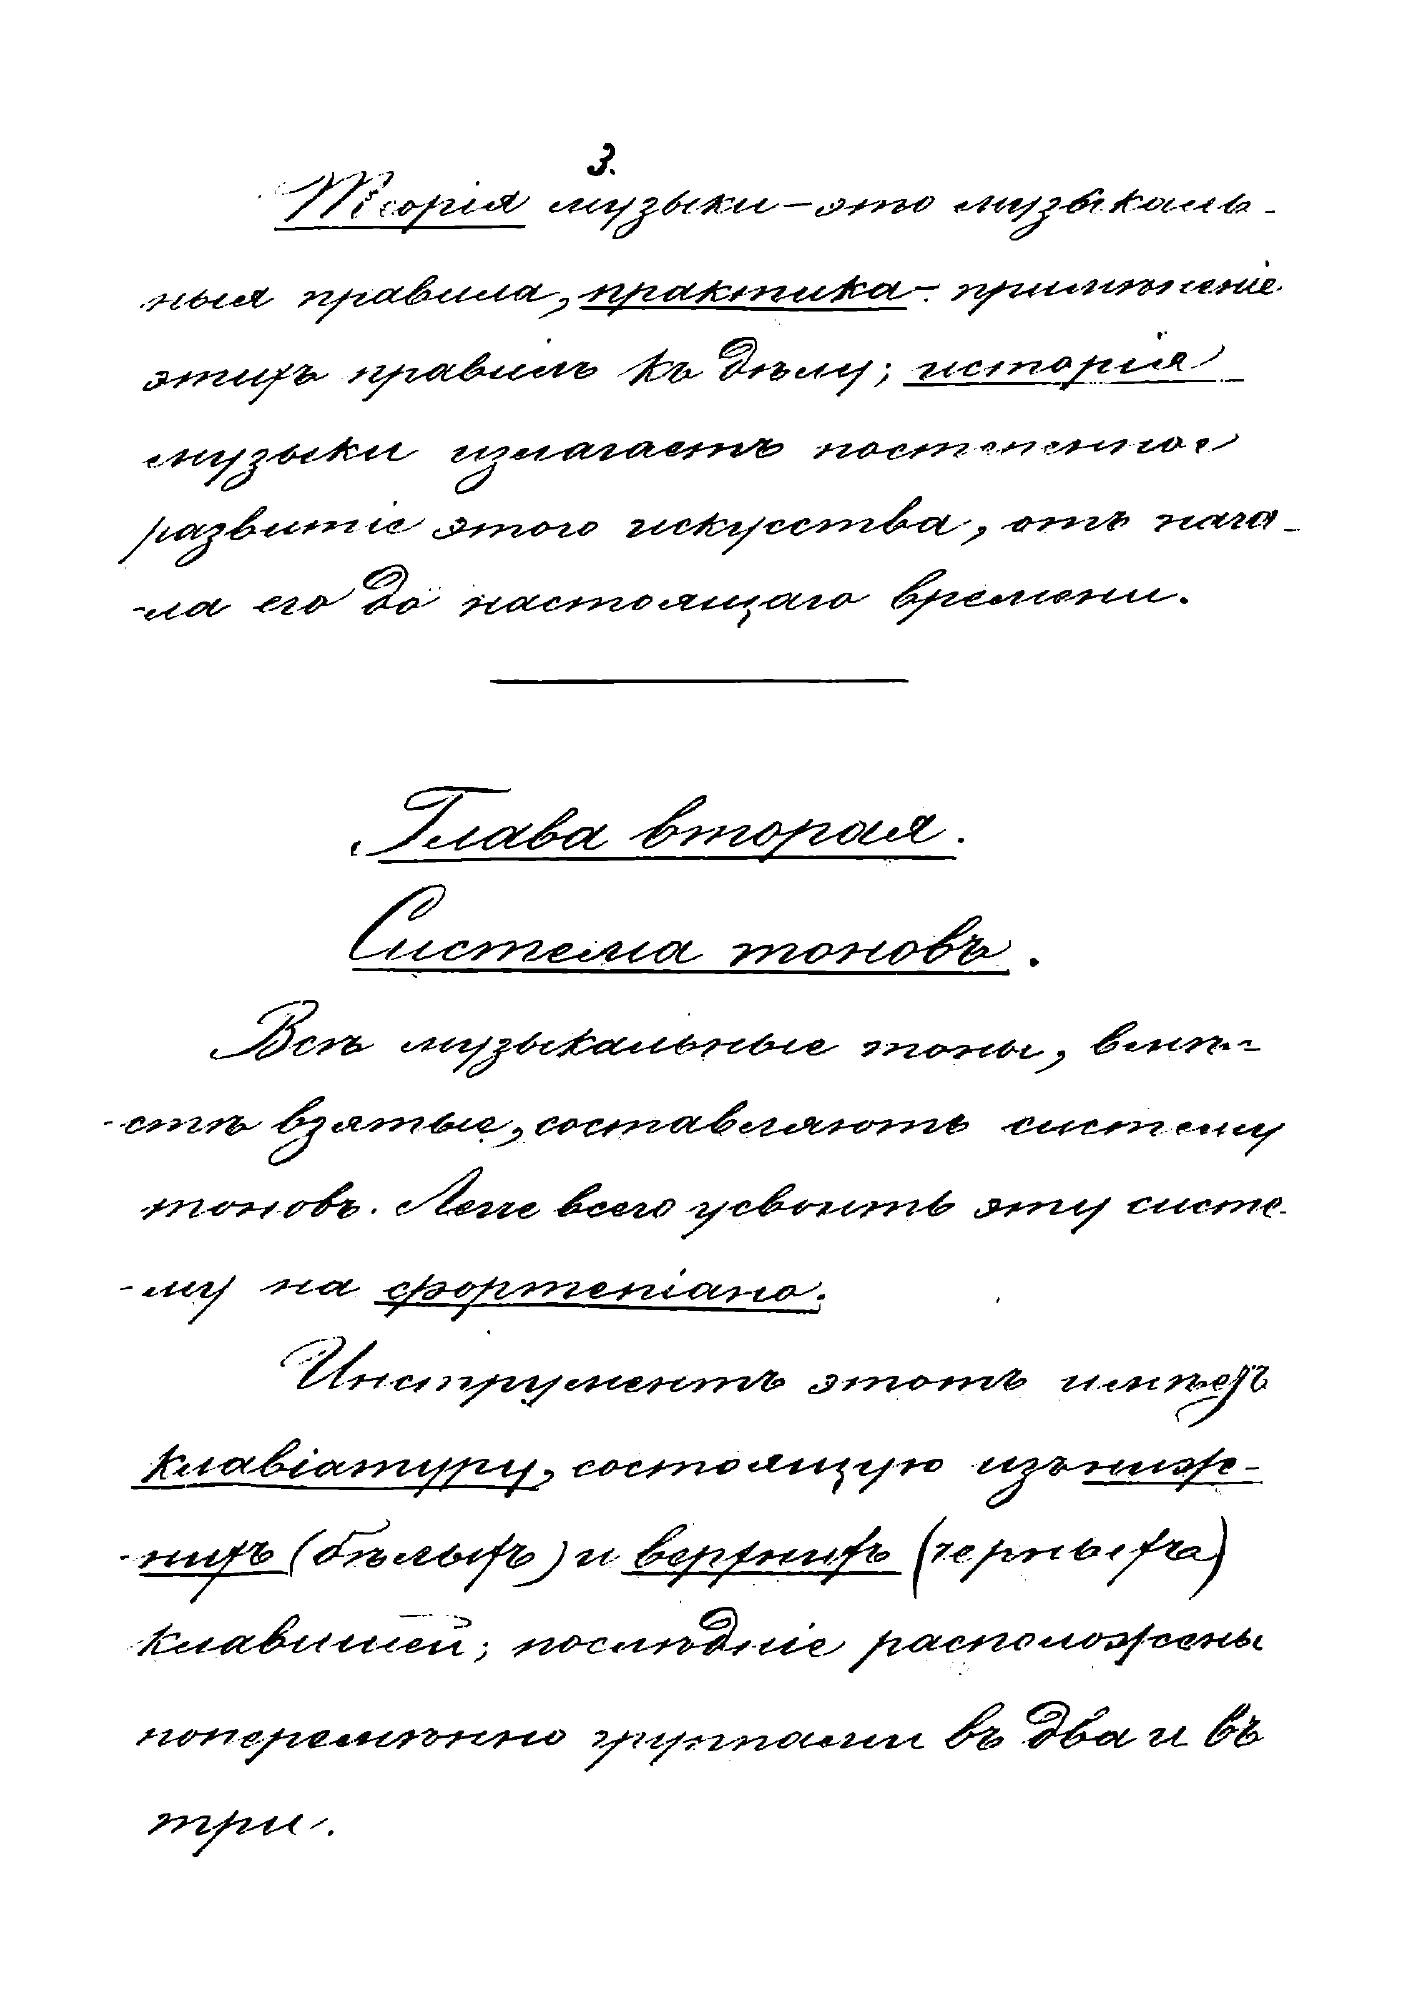 3.
Теорія музыки — это музыкаль-
ныя правила, практика — примѣненіе
этихъ правилъ къ дѣлу; исторія
музыки излагаетъ постепенное
развитіе этого искусства, отъ нача-
-ла его до настоящаго времени.
Глава вторая.
Система тоновъ.
Всѣ музыкальные тоны, вмѣ-
-стѣ взятые, составляютъ систему
тоновъ. Легче всего усвоить эту систе-
-му на фортепіано.
Инструментъ этотъ имѣетъ
клавіатуру, состоящую изъ ниж-
-нихъ (бѣлыхъ) и верхнихъ (черныхъ)
клавишей; послѣдніе расположены
поперемѣнно группами въ два и въ
три.